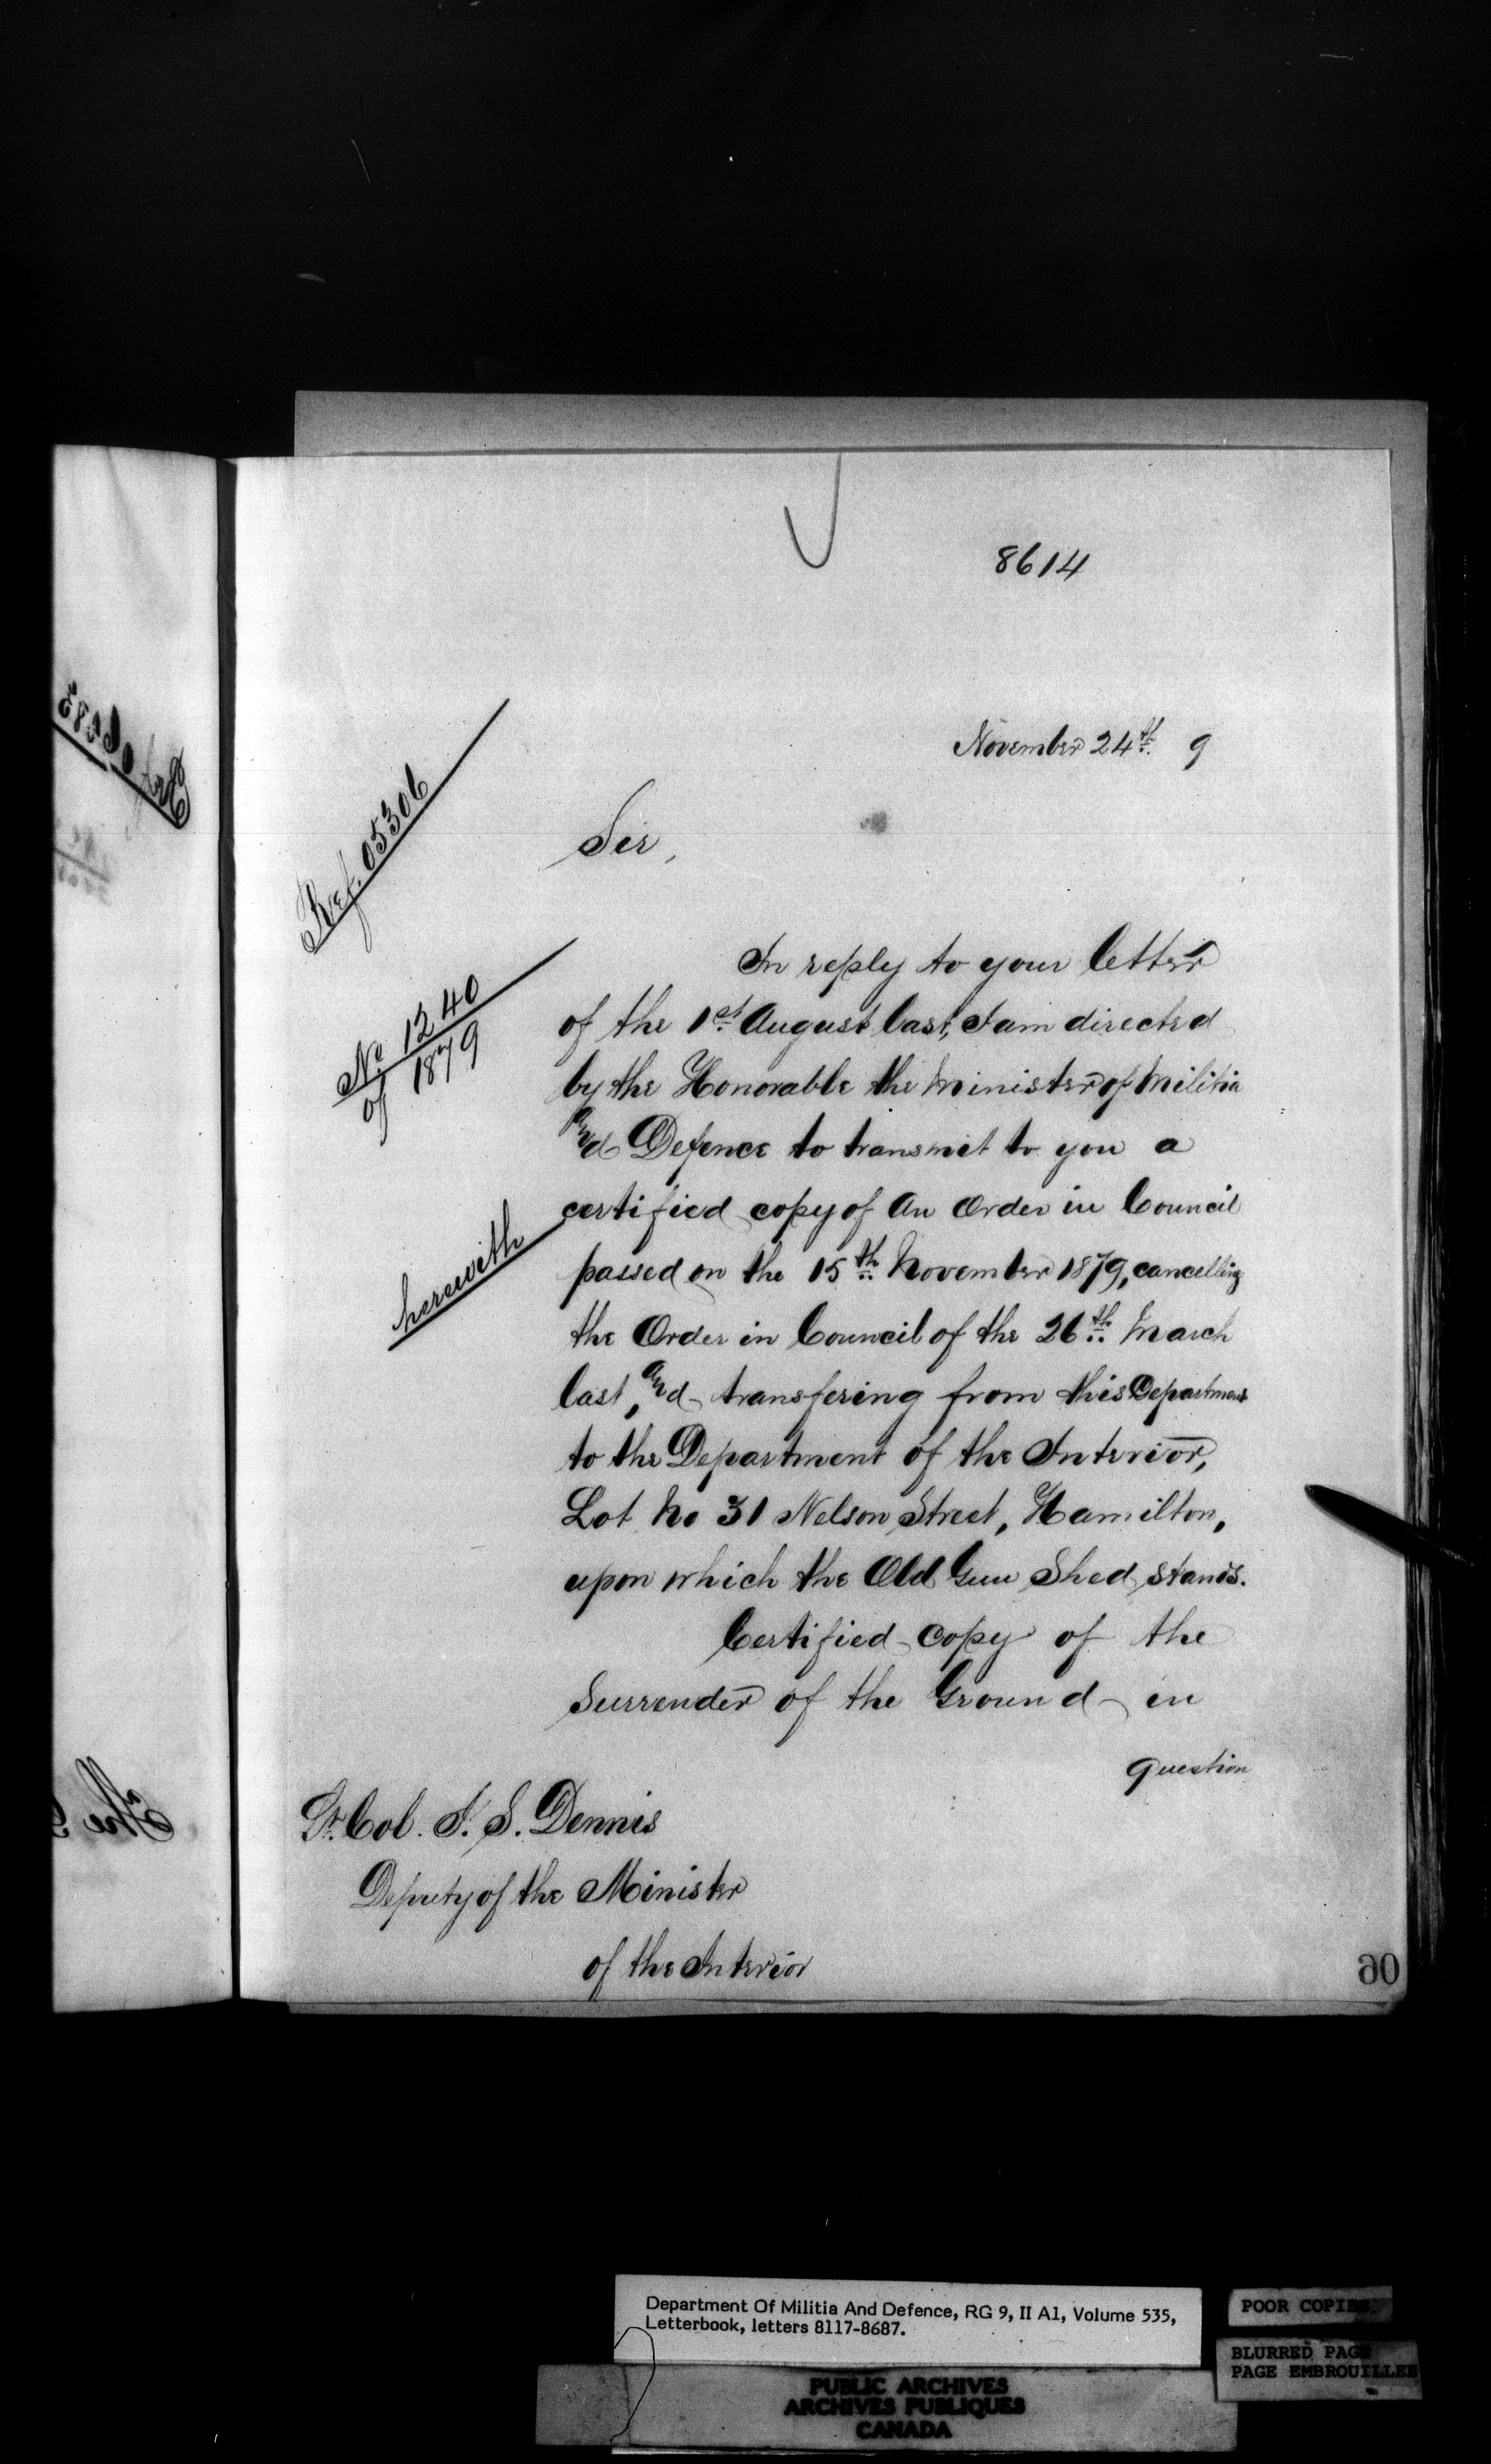 8614
November 24th 9
Ref. 05306
Sir,
No 1240
of 1879
In reply to your letter
of the 1st August last, I am directed
by the Honorable the Minister of Militia
and Defence to transmit to you a
certified copy of an Order in Council
herewith
passed on the 15th November 1879, cancelling
the Order in Council of the 26th March
last, and transfering from this Department
to the Department of the Interior,
Lot No 31 Nelson Street, Hamilton,
upon which the Old Gun Shed stands.
Certified copy of the
Surrender of the Ground in
question
Lt. Col. J. S. Dennis
Deputy of the Minister
of the Interior
Department Of Militia And Defence, RG 9, II A1, Volume 535,
Letterbook, letters 8117-8687.
POOR COPIES
BLURRED PAGE
PAGE EMBROUILLEE
PUBLIC ARCHIVES
ARCHIVES PUBLIQUES
CANADA